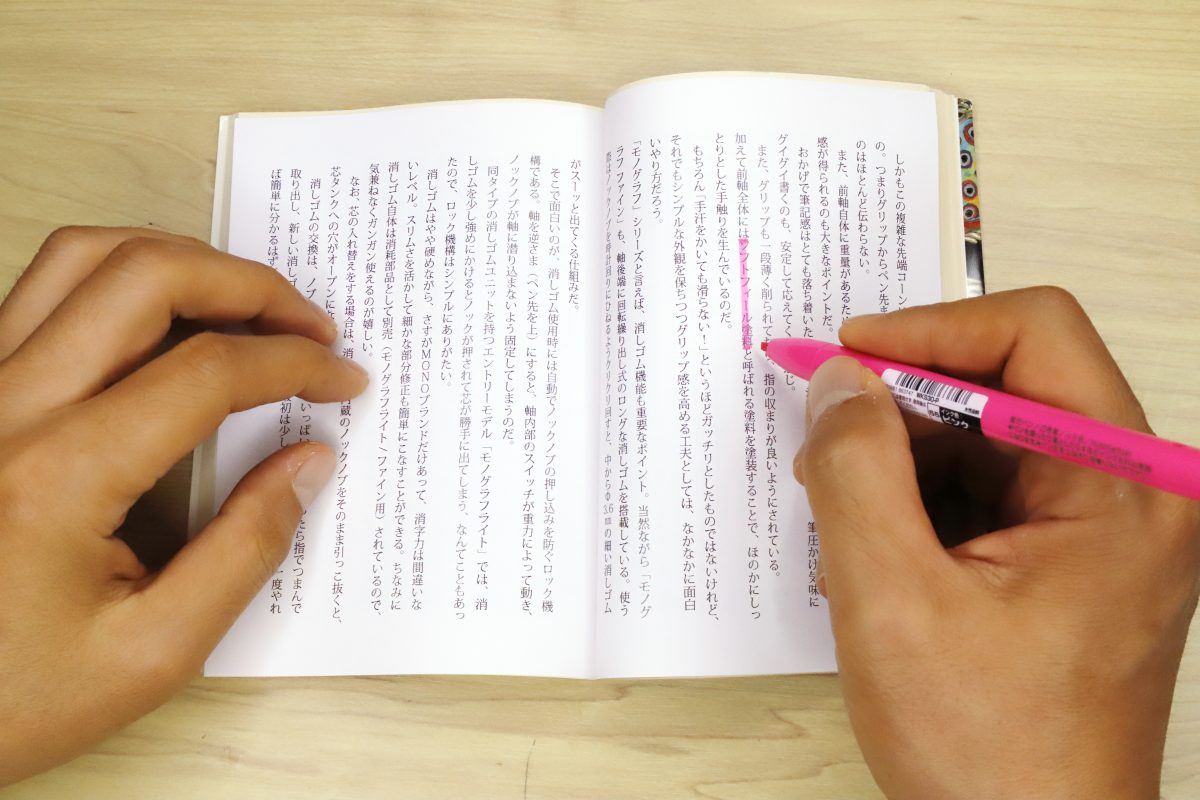 しかもこの複雑な先端コーン
の。つまりグリップからペン先ま
のはほとんど伝わらない。
また、前軸自体に重量があるため
感が得られるのも大きなポイントだ。 筆圧かけ気味に
おかげで筆記感はとても落ち着いた
グイグイ書くのも、安定して応えてく
また、グリップも一段薄く削られて 指の収まりが良いようにされている。
加えて前軸全体にはソフトフィール塗料と呼ばれる塗料を塗装することで、ほのかにしっ
とりとした手触りを生んでいるのだ。
もちろん「手汗をかいても滑らない!」というほどガッチリとしたものではないけれど、
それでもシンプルな外観を保ちつつグリップ感を高める工夫としては、なかなかに面白
いやり方だろう。
「モノグラフ」シリーズと言えば、消しゴム機能も重要なポイント。当然ながら「モノグ
ラフファイン」も、軸後端に回転繰り出し式のロングな消しゴムを搭載している。使う
際はノックノブを時計回りにひねるようクリクリ回すと、中からφ3.6㎜の細い消しゴム
がスーッと出てくる仕組みだ。
そこで面白いのが、消しゴム使用時には自動でノックノブの押し込みを防ぐロック機
構である。軸を逆さま(ペン先を上)にすると、軸内部のスイッチが重力によって動き、
ノックノブが軸に潜り込まないよう固定してしまうのだ。
同タイプの消しゴムユニットを持つエントリーモデル「モノグラフライト」では、消
しゴムを少し強めにかけるとノックが押されて芯が勝手に出てしまう、なんてこともあっ
たので、ロック機構はシンプルにありがたい。
消しゴムはやや硬めながら、さすがMONOブランドだけあって、消字力は間違いな
いレベル。スリムさを活かして細かな部分修正も簡単にこなすことができる。ちなみに
消しゴム自体は消耗部品として別売(モノグラフライト/ファイン用)されているので、
気兼ねなくガンガン使えるのが嬉しい。
なお、芯の入れ替えをする場合は、消 内蔵のノックノブをそのまま引っこ抜くと、
芯タンクへの穴がオープンに
消しゴムの交換は、ノブ いっぱい たら指でつまんで
取り出し、新しい消しゴ 最初は少し 一度やれ
ば簡単に分かるはず
インク色
ピンク
WKS30-P